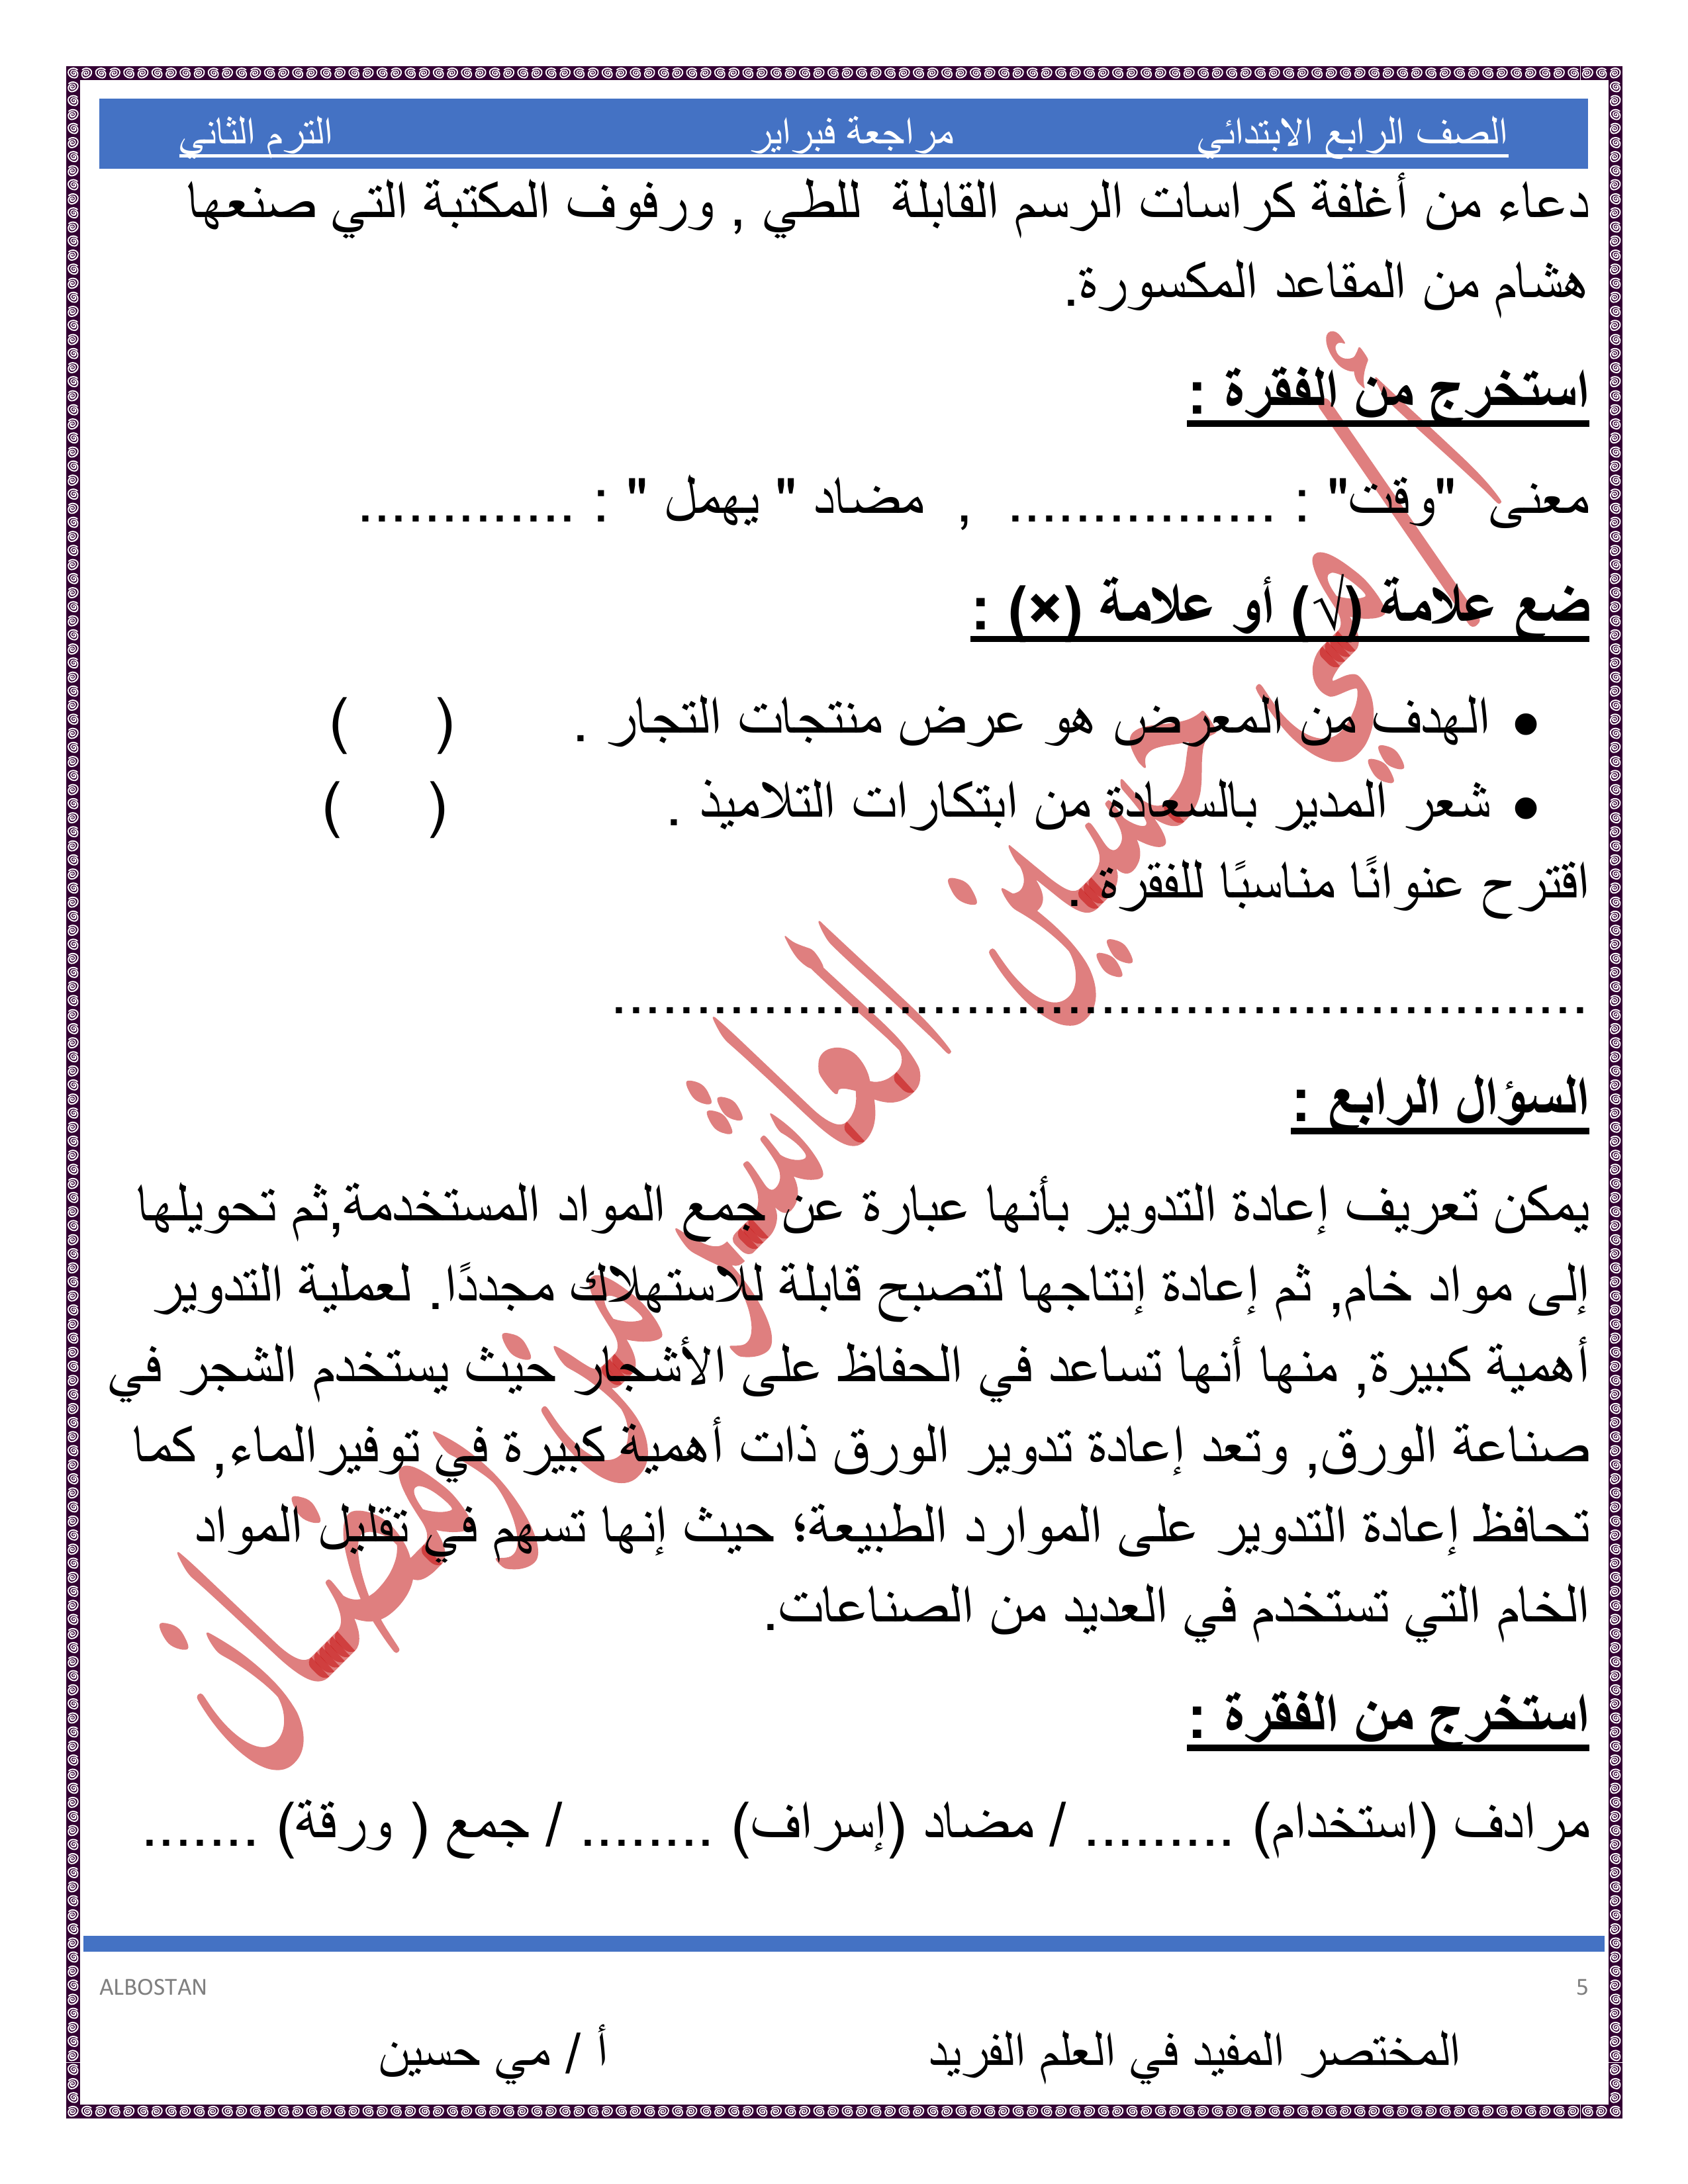 الصف الرابع الابتدائي مراجعة فبراير الترم الثاني
دعاء من أغلفة كراسات الرسم القابلة للطي , ورفوف المكتبة التي صنعها
هشام من المقاعد المكسورة.
استخرج من الفقرة :
معنى "وقت" : ................ , مضاد " يهمل " : .............
ضع علامة (√) أو علامة (×) :
• الهدف من المعرض هو عرض منتجات التجار . ( )
• شعر المدير بالسعادة من ابتكارات التلاميذ . ( )
اقترح عنوانًا مناسبًا للفقرة .
...........................................................
السؤال الرابع :
يمكن تعريف إعادة التدوير بأنها عبارة عن جمع المواد المستخدمة,ثم تحويلها
إلى مواد خام, ثم إعادة إنتاجها لتصبح قابلة للاستهلاك مجددًا. لعملية التدوير
أهمية كبيرة, منها أنها تساعد في الحفاظ على الأشجار حيث يستخدم الشجر في
صناعة الورق, وتعد إعادة تدوير الورق ذات أهمية كبيرة في توفيرالماء, كما
تحافظ إعادة التدوير على الموارد الطبيعة؛ حيث إنها تسهم في تقليل المواد
الخام التي تستخدم في العديد من الصناعات.
استخرج من الفقرة :
مرادف (استخدام) ......... / مضاد (إسراف) ........ / جمع ( ورقة) .......
أ/مي حسين العاشر من رمضان
ALBOSTAN 5
المختصر المفيد في العلم الفريد أ / مي حسين